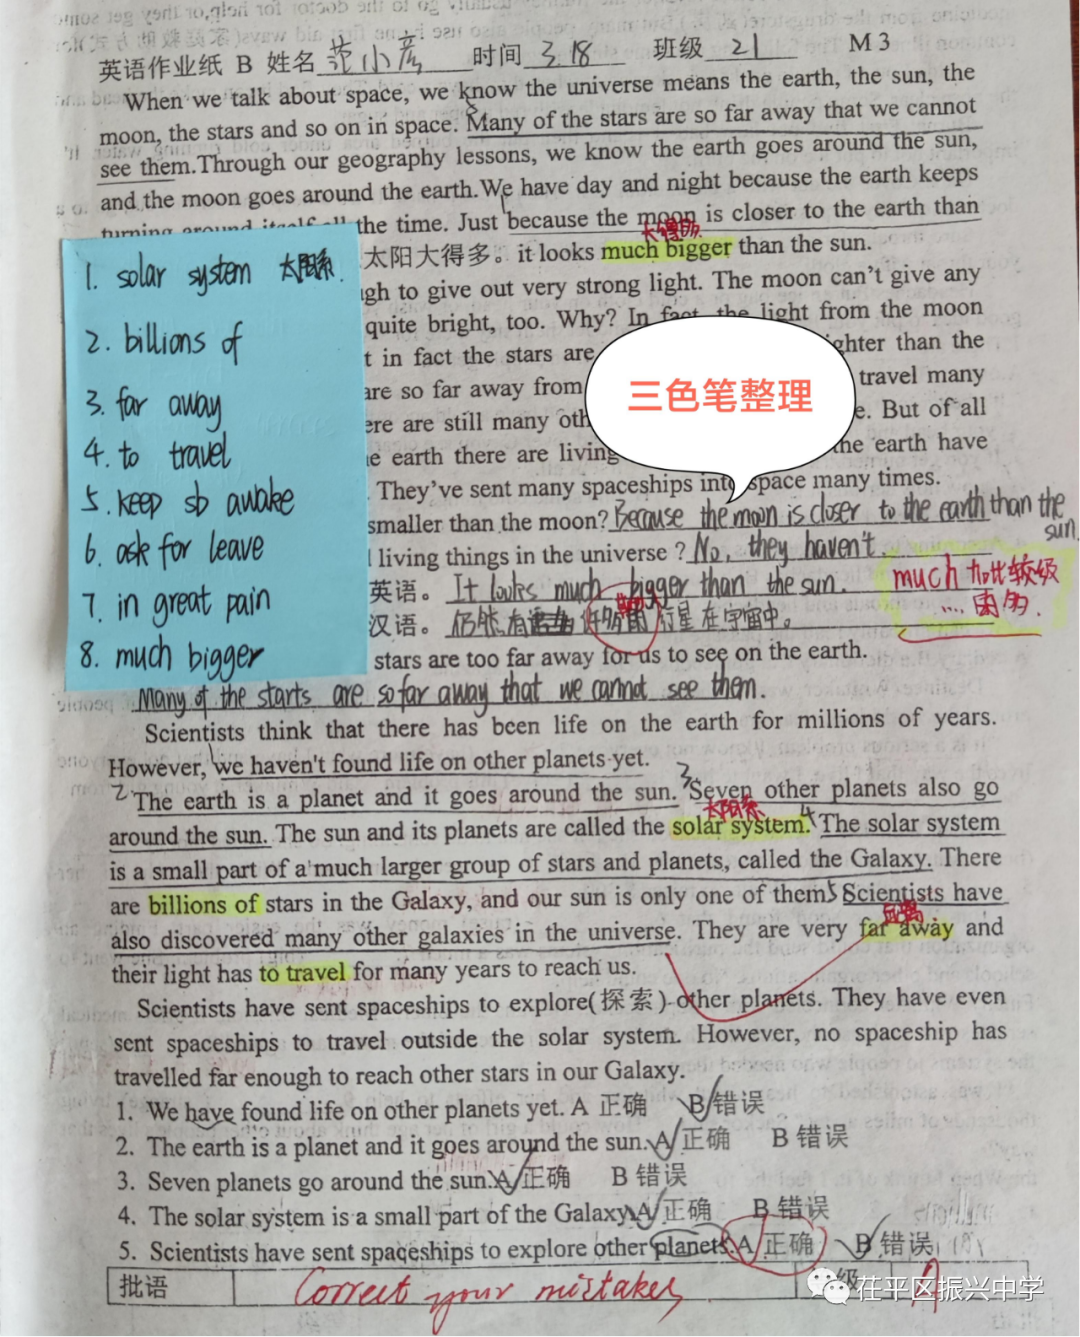 英语作业纸 B 姓名 范小彦 时间 3.18 班级 21 M 3
When we talk about space, we know the universe means the earth, the sun, the
moon, the stars and so on in space. Many of the stars are so far away that we cannot
see them.Through our geography lessons, we know the earth goes around the sun,
and the moon goes around the earth.We have day and night because the earth keeps
turning around itself all the time. Just because the moon is closer to the earth than
大得多
太阳大得多。it looks much bigger than the sun.
gh to give out very strong light. The moon can't give any
quite bright, too. Why? In fact, the light from the moon
t in fact the stars are ghter than the
are so far away from travel many
ere are still many oth e. But of all
e earth there are living the earth have
. They've sent many spaceships into space many times.
smaller than the moon? Because the moon is closer to the earth than the
sun.
living things in the universe ? No, they haven't.
英语。 It looks much bigger than the sun.
汉语。 仍然有 许多 行星在宇宙中。
much 加比较级
stars are too far away for us to see on the earth.
Many of the starts are so far away that we cannot see them.
1. solar system 太阳系
2. billions of
3. far away
4. to travel
5. keep sb awake
6. ask for leave
7. in great pain
8. much bigger
三色笔整理
Scientists think that there has been life on the earth for millions of years.
However, we haven't found life on other planets yet.
2 The earth is a planet and it goes around the sun. 3 Seven other planets also go
太阳系
around the sun. The sun and its planets are called the solar system. 4 The solar system
is a small part of a much larger group of stars and planets, called the Galaxy. There
are billions of stars in the Galaxy, and our sun is only one of them 5 Scientists have
also discovered many other galaxies in the universe. They are very far away and
their light has to travel for many years to reach us.
Scientists have sent spaceships to explore(探索) other planets. They have even
sent spaceships to travel outside the solar system. However, no spaceship has
travelled far enough to reach other stars in our Galaxy.
1. We have found life on other planets yet. A 正确 B 错误
2. The earth is a planet and it goes around the sun. A 正确 B 错误
3. Seven planets go around the sun. A 正确 B 错误
4. The solar system is a small part of the Galaxy. A 正确 B 错误
5. Scientists have sent spaceships to explore other planets. A 正确 B 错误
批语 Correct your mistakes 级 A
茌平区振兴中学